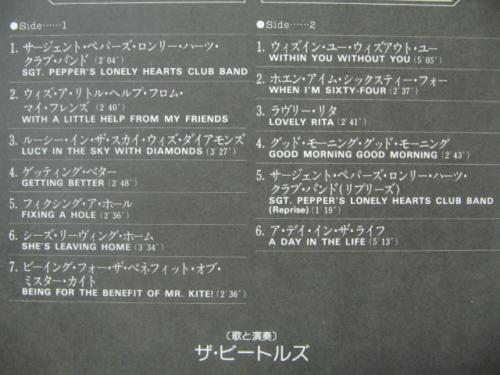 ●Side……1
1. サージェント・ペパーズ・ロンリー・ハーツ・
クラブ・バンド(2´04˝)
SGT. PEPPER'S LONELY HEARTS CLUB BAND
2. ウィズ・ア・リトル・ヘルプ・フロム・
マイ・フレンズ(2´40˝)
WITH A LITTLE HELP FROM MY FRIENDS
3. ルーシー・イン・ザ・スカイ・ウィズ・ダイアモンズ
LUCY IN THE SKY WITH DIAMONDS(3´27˝)
4. ゲッティング・ベター
GETTING BETTER(2´48˝)
5. フィクシング・ア・ホール
FIXING A HOLE(2´36˝)
6. シーズ・リーヴィング・ホーム
SHE'S LEAVING HOME(3´34˝)
7. ビーイング・フォー・ザ・ベネフィット・オブ・
ミスター・カイト
BEING FOR THE BENEFIT OF MR. KITE!(2´36˝)
●Side……2
1. ウィズイン・ユー・ウィズアウト・ユー
WITHIN YOU WITHOUT YOU(5´05˝)
2. ホエン・アイム・シックスティー・フォー
WHEN I'M SIXTY-FOUR(2´37˝)
3. ラヴリー・リタ
LOVELY RITA(2´41˝)
4. グッド・モーニング・グッド・モーニング
GOOD MORNING GOOD MORNING(2´43˝)
5. サージェント・ペパーズ・ロンリー・ハーツ・
クラブ・バンド(リプリーズ)
SGT. PEPPER'S LONELY HEARTS CLUB BAND
(Reprise)(1´19˝)
6. ア・デイ・イン・ザ・ライフ
A DAY IN THE LIFE(5´13˝)
〔歌と演奏〕
ザ・ビートルズ